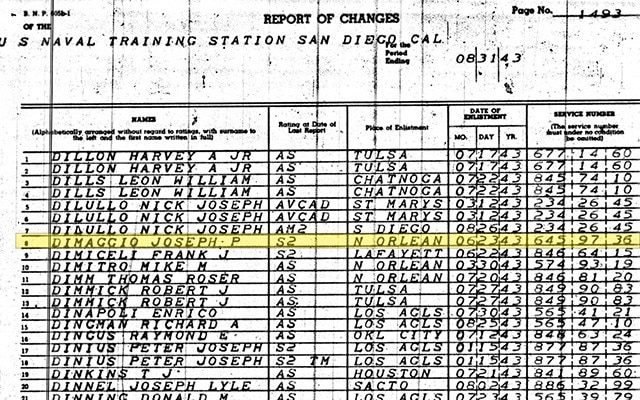 B. N. P. 605b-1
OF THE
REPORT OF CHANGES
Page No. 1493
U S NAVAL TRAINING STATION SAN DIEGO CAL
For the Period Ending 083143
NAMES
(Alphabetically arranged without regard to ratings, with surname to the left and the first name written in full)
Rating at Date of Last Report
Place of Enlistment
DATE OF ENLISTMENT
MO. DAY YR.
SERVICE NUMBER
(The service number must under no condition be omitted)
1 DILLON HARVEY A JR AS TULSA 071743 677 14 60
2 DILLON HARVEY A JR AS TULSA 071743 677 14 60
3 DILLS LEON WILLIAM AS CHATNOGA 072243 845 74 10
4 DILLS LEON WILLIAM AS CHATNOGA 072243 845 74 10
5 DILULLO NICK JOSEPH AVCAD ST MARYS 031243 234 26 45
6 DILULLO NICK JOSEPH AVCAD ST MARYS 031243 234 26 45
7 DILULLO NICK JOSEPH AM2 S DIEGO 082643 234 26 45
8 DIMAGGIO JOSEPH P S2 N ORLEAN 062343 645 97 36
9 DIMICELI FRANK J S2 LAFAYETT 062243 846 64 15
10 DIMITRO MIKE M AS N ORLEAN 033043 574 93 19
11 DIMM THOMAS ROSER AS N ORLEAN 072043 846 81 20
12 DIMMICK ROBERT J AS TULSA 072743 849 90 83
13 DIMMICK ROBERT J AS TULSA 072743 849 90 83
14 DINAPOLI ENRICO AS LOS AGLS 073043 565 41 21
15 DINGMAN RICHARD A AS LOS AGLS 082543 565 47 10
16 DINGUS RAYMOND E AS OKL CITY 071243 846 63 24
17 DINIUS PETER JOSEPH S2 LOS AGLS 011543 877 87 36
18 DINIUS PETER JOSEPH S2 TM LOS AGLS 011543 877 87 36
19 DINKINS T J AS HOUSTON 072143 841 89 60
20 DINNEL JOSEPH LYLE AS SACTO 080243 886 32 99
21 DINNING DONALD M AS LOS AGLS 072343 565 39 79